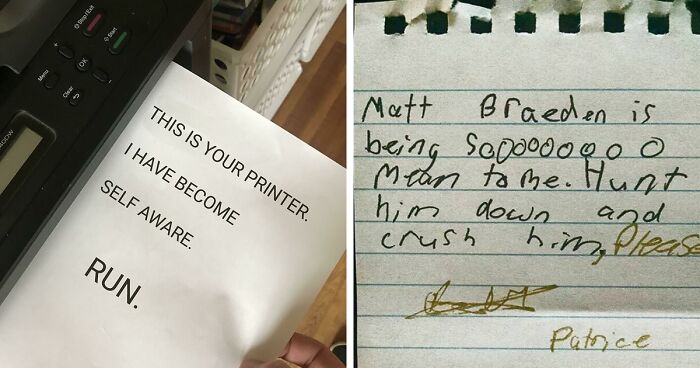 Stop/Exit
Start
OK
Menu
Clear
THIS IS YOUR PRINTER.
I HAVE BECOME
SELF AWARE.
RUN.
Matt Braeden is
being Sooooooooo
Mean to me. Hunt
him down and
crush him, Please
Patrice